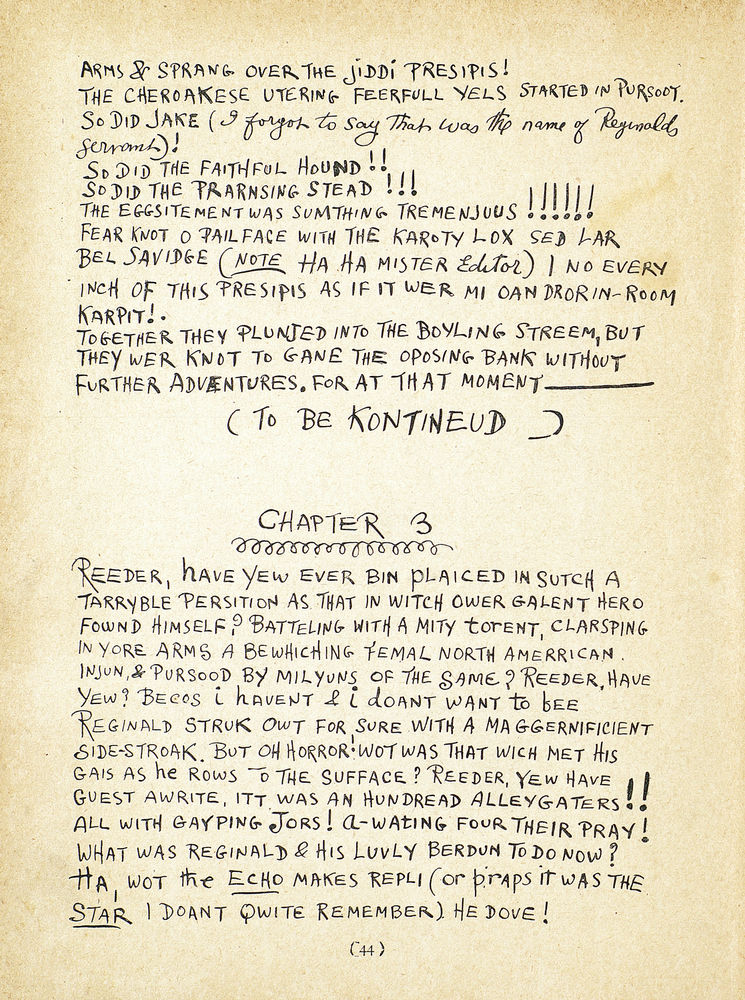 ARMS & SPRANG OVER THE JiDDi PRESIPIS!
THE CHEROAKESE UTERING FEERFULL YELS STARTED IN PURSOOT.
SO DID JAKE (I forgot to say that was the name of Reginalds
servant)!
SO DID THE FAITHFUL HOUND!!
SO DID THE PRARNSING STEAD !!!
THE EGGSITEMENT WAS SUMTHING TREMENJUUS !!!!!!
FEAR KNOT O PAILFACE WITH THE KAROTY LOX SED LAR
BEL SAVIDGE (NOTE HA HA MISTER Editor) I NO EVERY
INCH OF THIS PRESIPIS AS IF IT WER MI OAN DRORIN-ROOM
KARPIT!.
TOGETHER THEY PLUNJED INTO THE BOYLING STREEM, BUT
THEY WER KNOT TO GANE THE OPOSING BANK WITHOUT
FURTHER ADVENTURES. FOR AT THAT MOMENT———
(TO BE KONTINEUD)
CHAPTER 3
REEDER, hAVE YEW EVER BIN PLAICED IN SUTCH A
TARRYBLE PERSITION AS THAT IN WITCH OWER GALENT HERO
FOWND HIMSELF? BATTELING WITH A MITY torENT, CLARSPING
IN YORE ARMS A BEWHICHING FEMAL NORTH AMERRICAN.
INJUN, & PURSOOD BY MILYUNS OF THE SAME? REEDER, HAVE
YEW? BECOS i hAVENT & i dOANT WANT to bEE
REGINALD STRUK OWT FOR SURE WITH A MAGGERNIFICIENT
SIDE-STROAK. BUT OH HORROR! WOT WAS THAT WICH MET HIS
GAIS AS he ROWS TO THE SUFFACE? REEDER, YEW HAVE
GUEST AWRITE, ITT WAS AN HUNDREAD ALLEYGATERS!!
ALL WITH GAYPING JORS! A-WATING FOUR THEIR PRAY!
WHAT WAS REGINALD & HIS LUVLY BERDUN TO DO NOW?
HA, WOT the ECHO MAKES REPLI (or p'rAPS iT WAS THE
STAR I DOANT QWITE REMEMBER). HE DOVE!
(44)